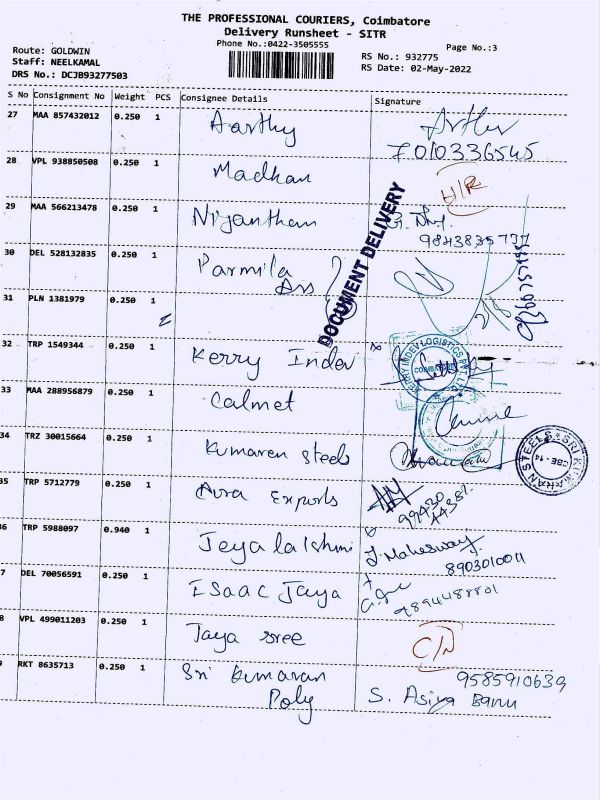 THE PROFESSIONAL COURIERS, Coimbatore
Delivery Runsheet - SITR
Phone No.:0422-3505555
Page No.:3
Route: GOLDWIN
Staff: NEELKAMAL
DRS No.: DCJB93277503
RS No.: 932775
RS Date: 02-May-2022
S No Consignment No Weight PCS Consignee Details Signature
27 MAA 857432012 0.250 1 Aarthy
7010336545
28 VPL 938850508 0.250 1 Madhan
29 MAA 566213478 0.250 1 Niyantham
9843835737
30 DEL 528132835 0.250 1 Parmila
DOCUMENT DELIVERY
31 PLN 1381979 0.250 1
32 TRP 1549344 0.250 1 Kerry Indev
KERRY INDEV LOGISTICS PVT LTD
COIMBATORE
33 MAA 288956879 0.250 1 Calmet
34 TRZ 30015664 0.250 1 Kumaren steels
SRI KUMARAN STEELS
CBE - 14
35 TRP 5712779 0.250 1 Aura Exports
36 TRP 5988097 0.940 1 Jeya lakshmi J. Maheswary
8903010011
7 DEL 70056591 0.250 1 ISaac Jaya
9894488801
8 VPL 499011203 0.250 1 Jaya sree C/N
9 RKT 8635713 0.250 1 Sri Kumaran
Poly
9585910639
S. Asiya Banu